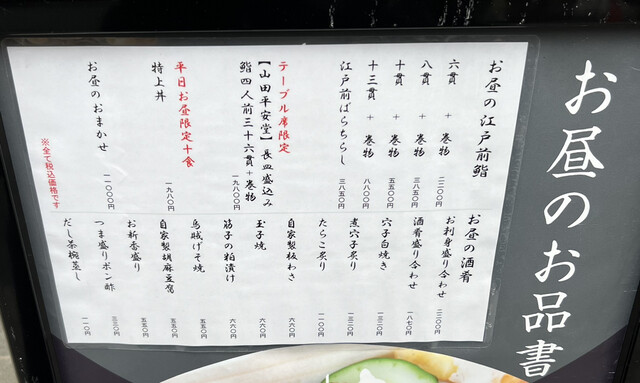 お昼のお品書
お昼の江戸前鮨
六貫 + 巻物 二二〇〇
八貫 + 巻物 三八五〇
十貫 + 巻物 五五〇〇
十三貫 + 巻物 八八〇〇
江戸前ばらちらし 三八五〇
テーブル席限定
【山田平安堂】長皿盛込み
鮨四人前三十六貫+巻物 一九八〇〇
平日お昼限定十食
特上丼 一九八〇
お昼のおまかせ 一一〇〇〇
※全て税込価格です
お昼の酒肴
お刺身盛り合わせ 二二〇〇
酒肴盛り合わせ 一八七〇
穴子白焼き 一三二〇
煮穴子炙り 一三二〇
たらこ炙り 一一〇〇
自家製板わさ 六六〇
玉子焼 六六〇
筋子の粕漬け 六六〇
烏賊げそ焼 五五〇
自家製胡麻豆腐 五五〇
お新香盛り 五五〇
つま盛りポン酢 三三〇
だし茶碗蒸し 一一〇